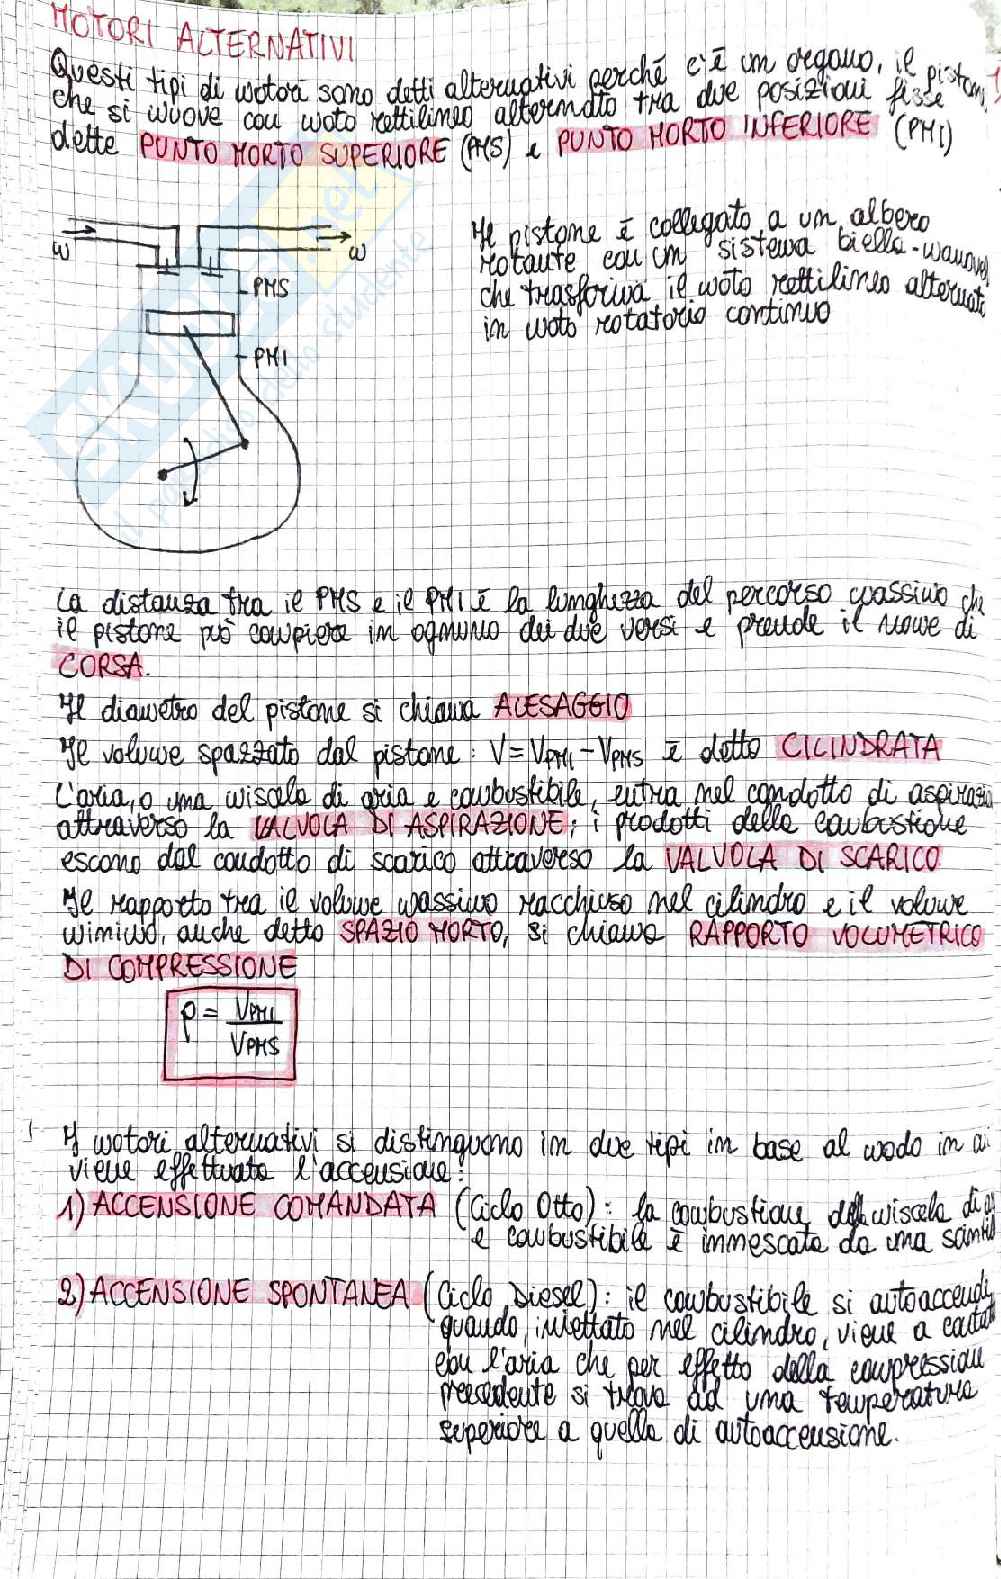 MOTORI ALTERNATIVI
Questi tipi di motori sono detti alternativi perché c'è un organo, il pistone,
che si muove con moto rettilineo alternato tra due posizioni fisse
dette PUNTO MORTO SUPERIORE (PMS) e PUNTO MORTO INFERIORE (PMI)
Il pistone è collegato a un albero
rotante con un sistema biella-manovel
che trasforma il moto rettilineo alternati
in moto rotatorio continuo
ω
ω
PMS
PMI
La distanza tra il PMS e il PMI è la lunghezza del percorso massimo che
il pistone può compiere in ognuno dei due versi e prende il nome di
CORSA.
Il diametro del pistone si chiama ALESAGGIO
Il volume spazzato dal pistone: V = VPMI - VPMS è detto CILINDRATA
L'aria, o una miscela di aria e combustibile, entra nel condotto di aspirazio
attraverso la VALVOLA DI ASPIRAZIONE; i prodotti della combustione
escono dal condotto di scarico attraverso la VALVOLA DI SCARICO
Il rapporto tra il volume massimo racchiuso nel cilindro e il volume
minimo, anche detto SPAZIO MORTO, si chiama RAPPORTO VOLUMETRICO
DI COMPRESSIONE
ρ = VPMI / VPMS
I motori alternativi si distinguono in due tipi in base al modo in cui
viene effettuata l'accensione:
1) ACCENSIONE COMANDATA (Ciclo Otto): la combustione della miscela di
e combustibile è innescata da una scintil
2) ACCENSIONE SPONTANEA (Ciclo Diesel): il combustibile si autoaccende,
quando, iniettato nel cilindro, viene a contat
con l'aria che per effetto della compressione
precedente si trova ad una temperatura
superiore a quella di autoaccensione.